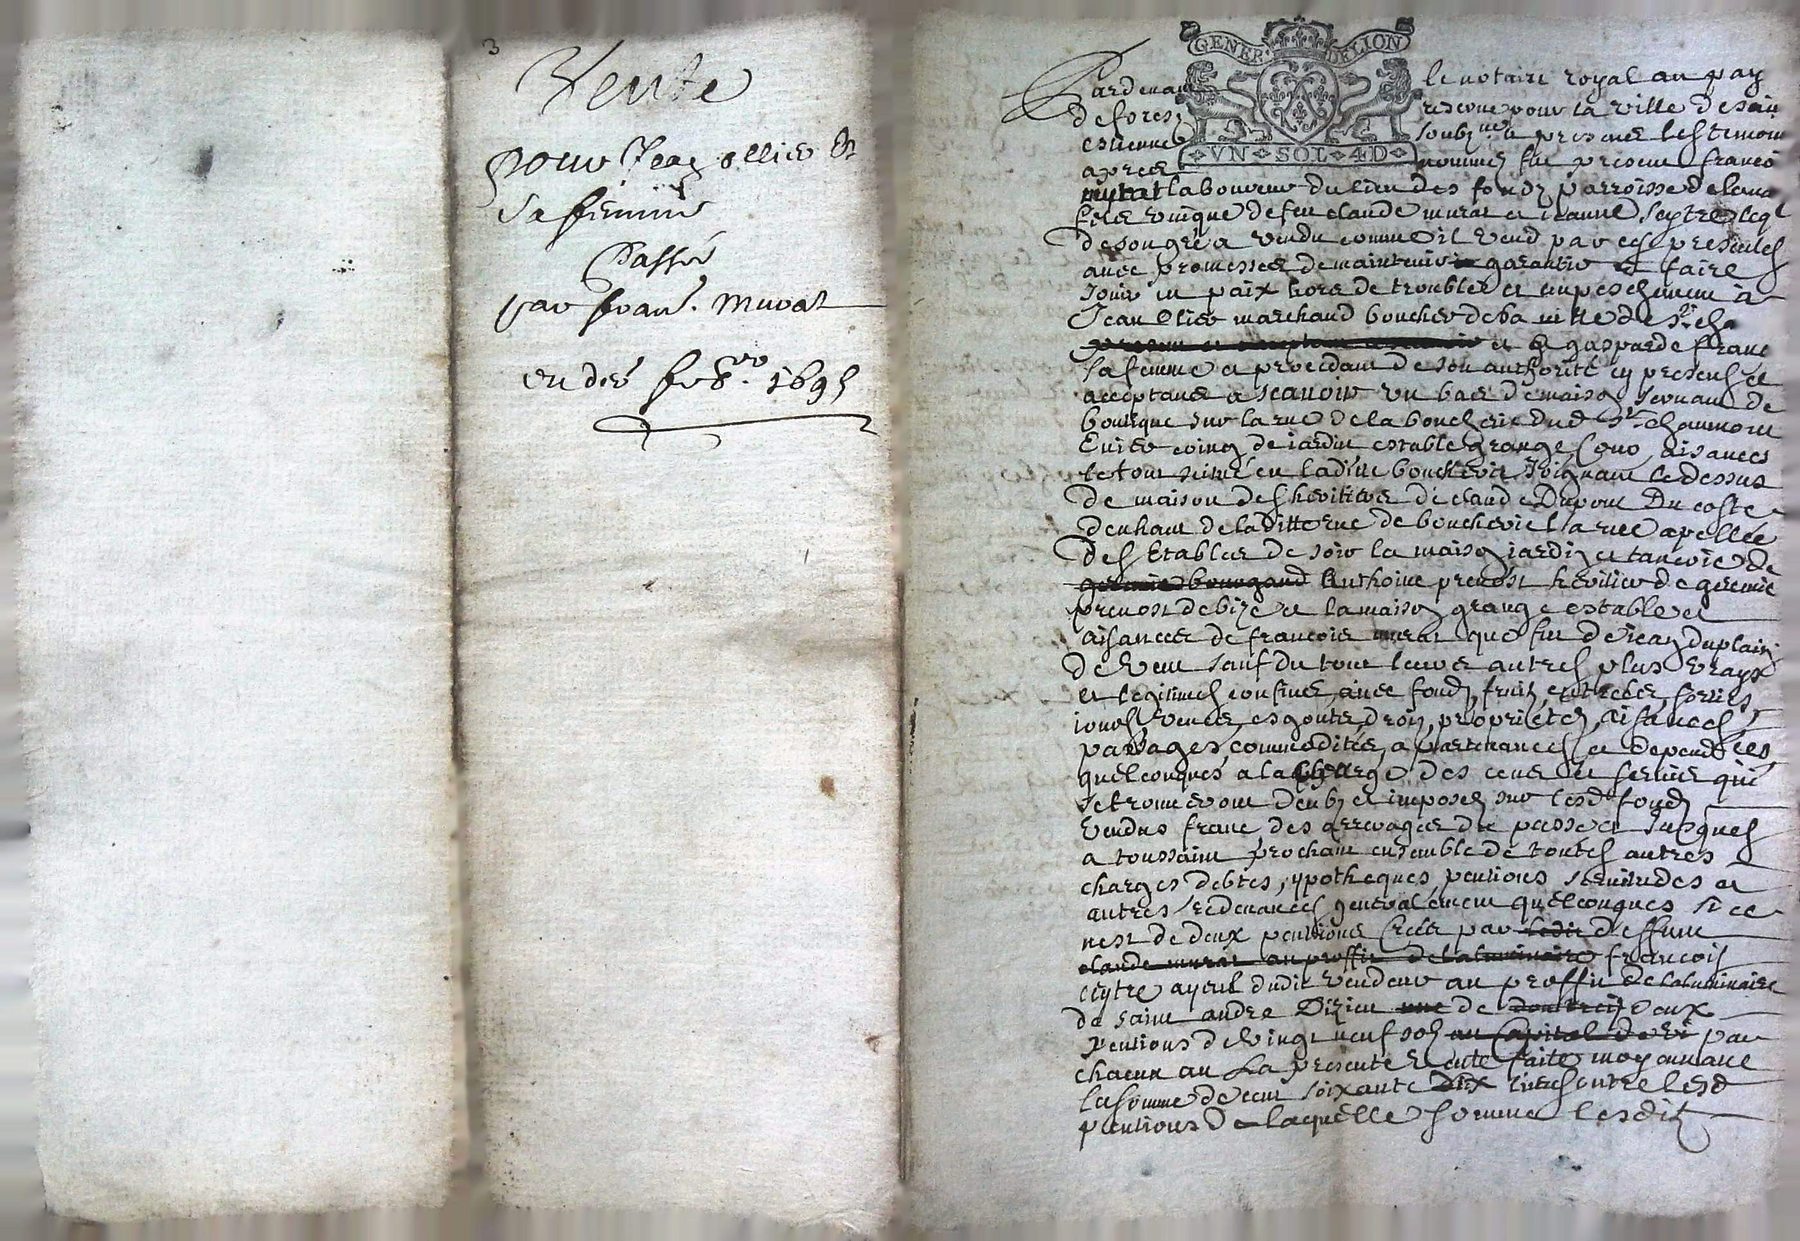 3
Vente
pour Jean ollier &
sa femme
Passé
par fran. Murat
en d 1695
GENER DE LION
VN SOL 4D
Pardevant le notaire royal au pay
de forest reservé pour la ville de sain
estienne soubzne presmes les temoin
apres nommes fut present françoi
murat laboureur du lieu des fonds parroisse de
fils unique de feu claude murat et jeanne seytre leql
de son gré a vendu comme il vend par ces presentes
avec promesses de maintenir garantir et faire
jouir en paix hors de troubles et empeschement à
Jean Olier marchand boucher de la ville de St cha
et a gasparde franc
sa femme et procedant de son authorité cy presens et
acceptans a scavoir un bas de maison servant de
boutique sur la rue de la boucherie dud St chaumom
coing de jardin estable grange aisances
le tout situé en ladite boucherie joignant le dessus
de maison des heritiers de claude Dupont Du costé
denhaut de laditte rue de boucherie la rue apellée
des Estables de soir la maison jardin et tancoire de
Anthoine prevost heritier de geremie
prevost de bize et la maison grange estable et
aisances de francois murat que fut de jean duplain
de vent sauf du tout leurs autres plus vrays
et legitimes confins, avec fonds, fruits, entrées, sorties,
jours, veues, esgouts, droits, proprietés, aisances,
passages, commodités, apartenances et depend ces
quelconques a la charge des cens et servis qui
se trouveront deubz et imposez sur lesd fonds
vendus franc des arrerages du passé et jusques
a toussaint prochain ensemble de toutes autres
charges debtes, ypotheques, pentions servitudes et
autres redevances generalement quelconques si ce
nest de deux pentions crées par ledit deffunt
claude murat au proffit de la luminaire francois
ceytre ayeul dudit vendeur au proffit de la luminaire
de saint andre Dizieu une de deux
pentions de vingt neuf sols au Capital de par
chacun an La presente vente faite moyennant
la somme de cent soixante dix livres outre lesd
pentions De laquelle somme lesdits